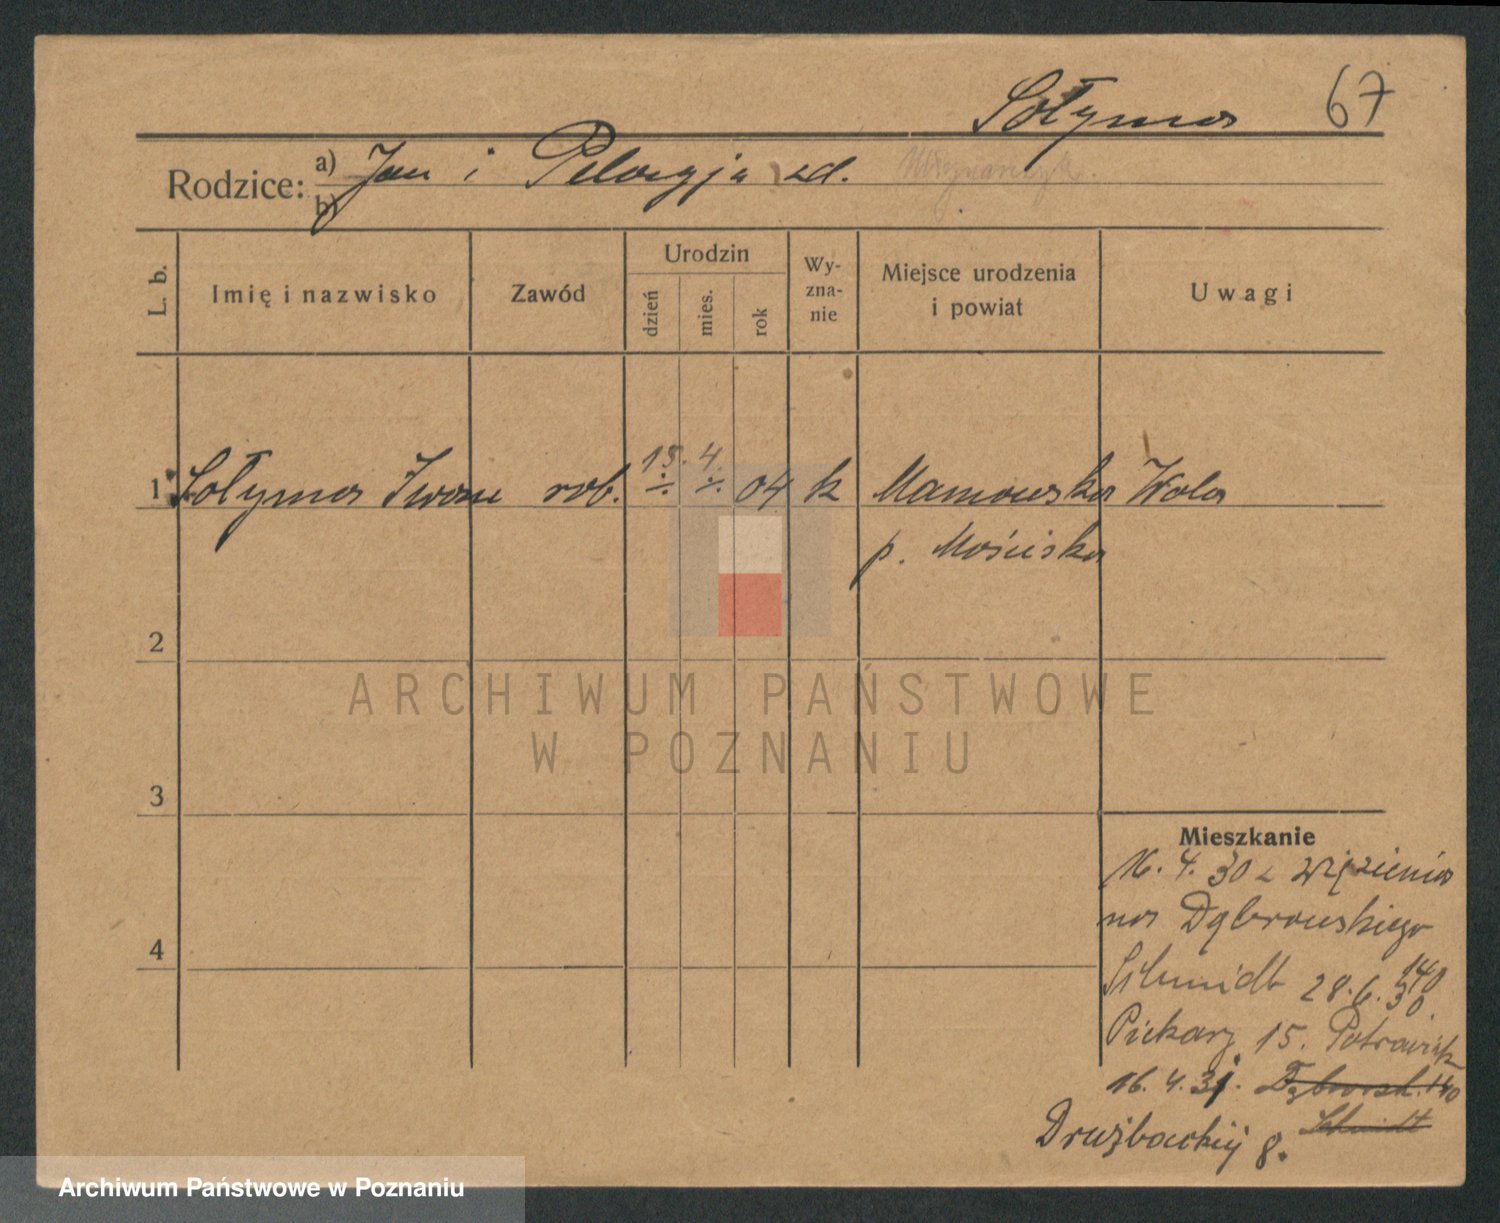 Sołyma 67
Rodzice: a) Jan i Pelagja zd.
b)
L. b. Imię i nazwisko Zawód Urodzin dzień mies. rok Wy-zna-nie Miejsce urodzenia i powiat Uwagi
15. 4.
1 Sołyma Iwan rob. ·/. ·/. 04 k Mamowska Wola
p. Mościska
2
ARCHIWUM PAŃSTWOWE
W POZNANIU
3
4
Mieszkanie
16. 4. 30 z więzienia
na Dąbrowskiego
140
Schmidt 28. 6. 30.
Piekary 15.
16. 4. 31. Dąbrowsk. 140
Schmidt
Drużbackiej 8.
Archiwum Państwowe w Poznaniu